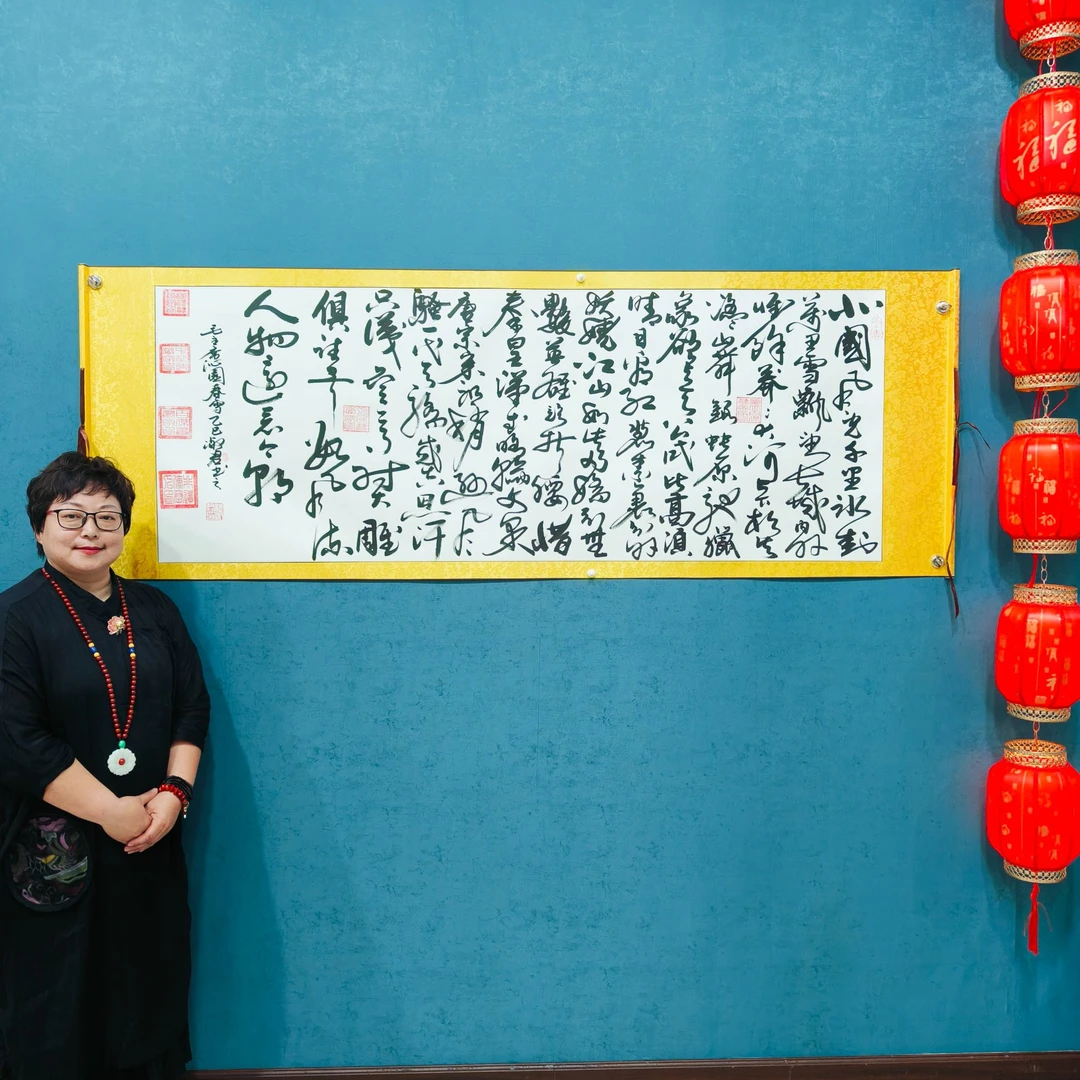 北國風光千里冰封
萬里雪飄望長城內外
惟餘莽莽大河上下頓失
滔滔山舞銀蛇原馳蠟
象欲與天公試比高須
晴日看紅裝素裹分外
妖嬈江山如此多嬌引無
數英雄競折腰惜
秦皇漢武略輸文采
唐宗宋祖稍遜風
騷一代天驕成吉思汗
只識彎弓射大雕
俱往矣數風流
人物還看今朝
毛主席沁園春雪乙巳淑君書之
福
福